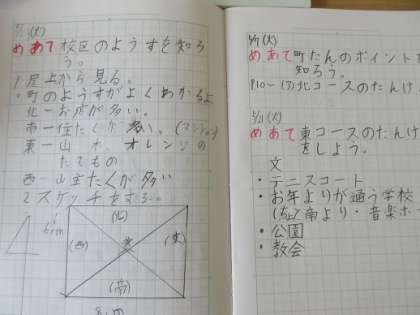 (火)
めあて 校区のようすを知ろ
う。
1.屋上から見る。
・町のようすがよくわかるよ
北一お店が多い。
南一住たくが多い。
東一山 オレンジの
たてもの
西一山 住たくが多い
2.スケッチをする。
(北)
(西)
(東)
(南)
(火)
めあて 町たんのポイントを
知ろう。
P10〜 北コースのたんけ
5/11(火)
めあて 東コースのたんけ
をしよう。
文
・テニスコート
・お年よりが通う学校
南より・音楽ホ
・公園
・教会